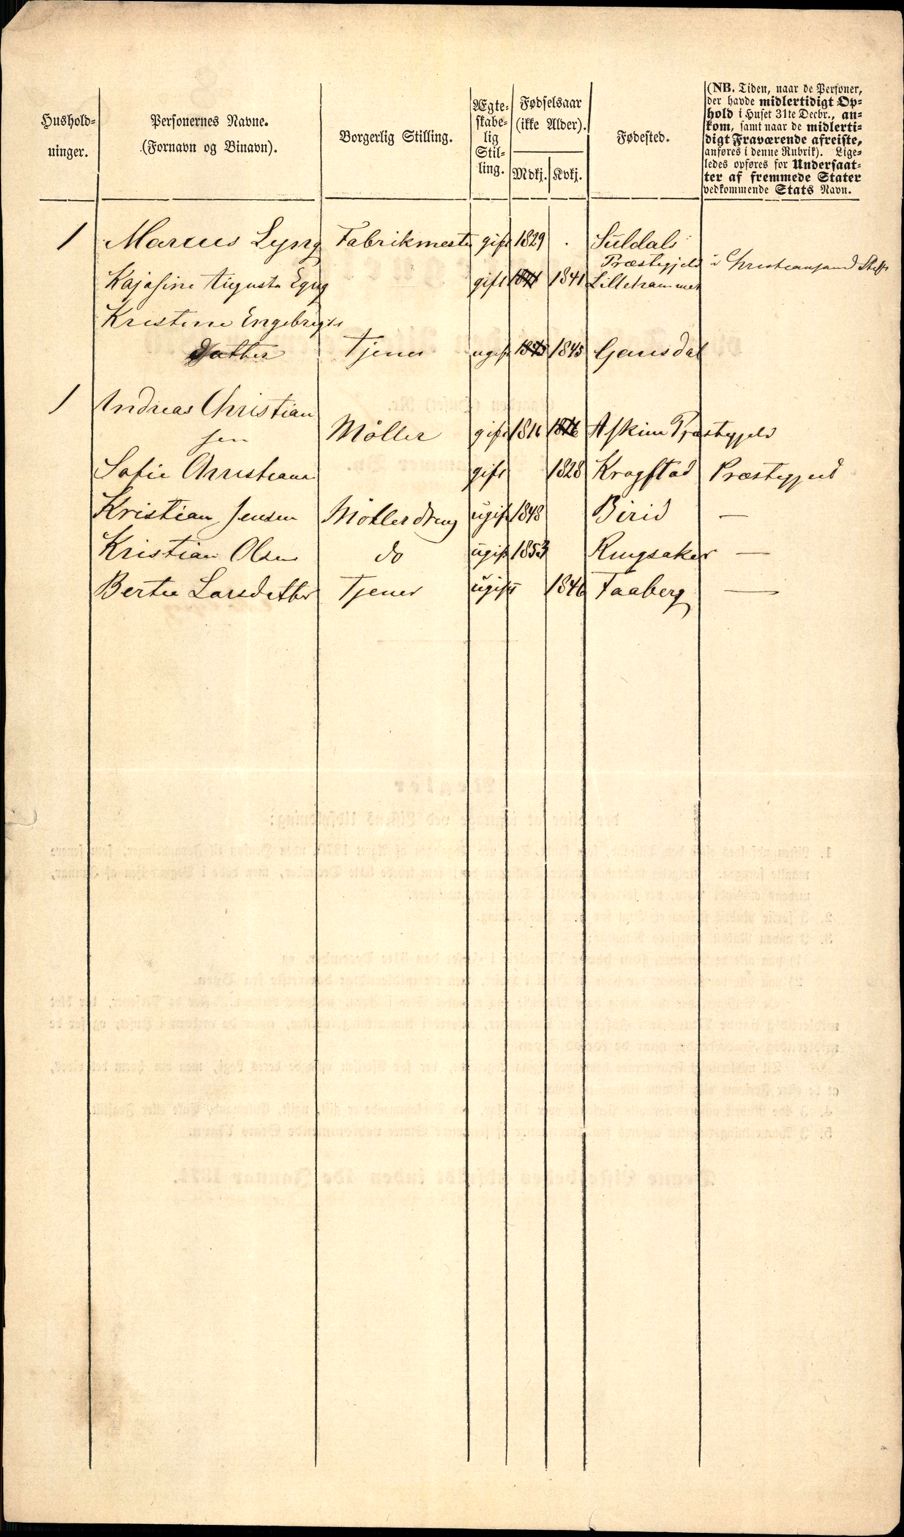 Hushold-
ninger.
Personernes Navne.
(Fornavn og Binavn).
Borgerlig Stilling.
Ægte-
skabe-
lig
Stil-
ling.
Fødselsaar
(ikke Alder).
Mdkj. Kvkj.
Fødested.
(NB. Tiden, naar de Personer,
der havde midlertidigt Op-
hold i Huset 31te Decbr., an-
kom, samt naar de midlerti-
digt Fraværende afreiste,
anføres i denne Rubrik). Lige-
ledes opføres for Undersaat-
ter af fremmede Stater
vedkommende Stats Navn.
1 Marcus Lyng Fabrikmester gift 1829 Suldals
Præstegjeld i Christiansand Stift
Kajasine Augusta gift 1841 Lillehammer
Kristine Engebregts
datter Tjener ugift 1845 Gausdal
1 Andreas Christian
sen Møller gift 1816 Askim Præstegjeld
Sofie Christiane gift 1828 Krogstad Præstegjeld
Kristian Jensen Møllerdreng ugift 1848 Birid —
Kristian Olsen do ugift 1853 Ringsaker —
Berte Larsdatter Tjener ugift 1846 Faaberg —